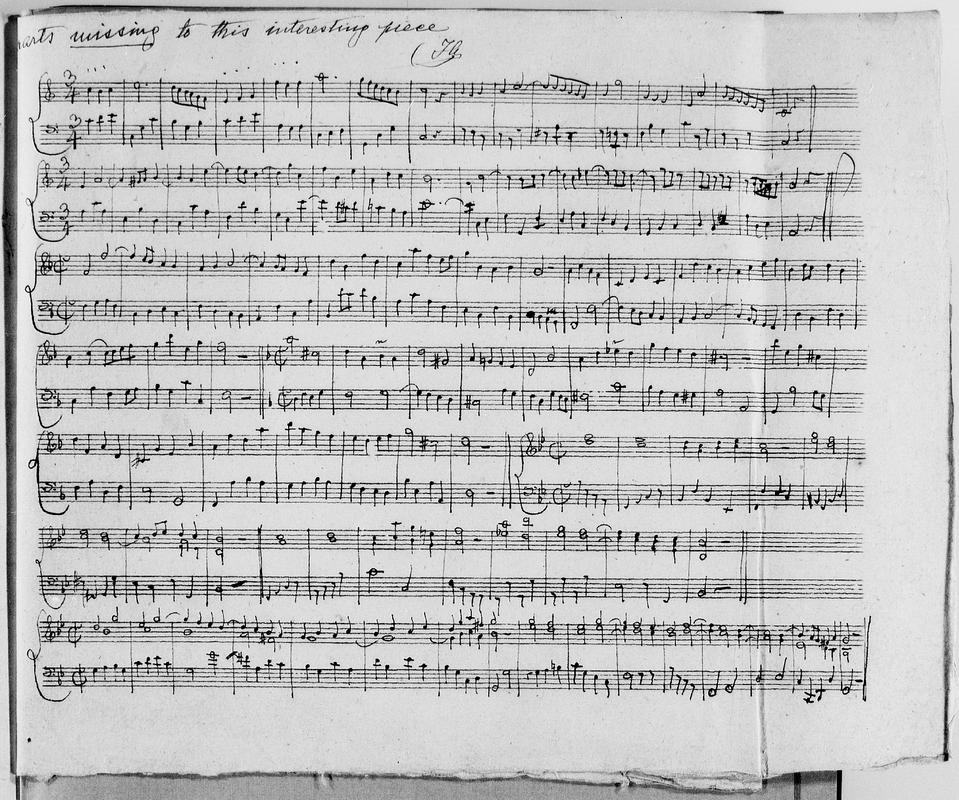 arts missing to this interesting piece